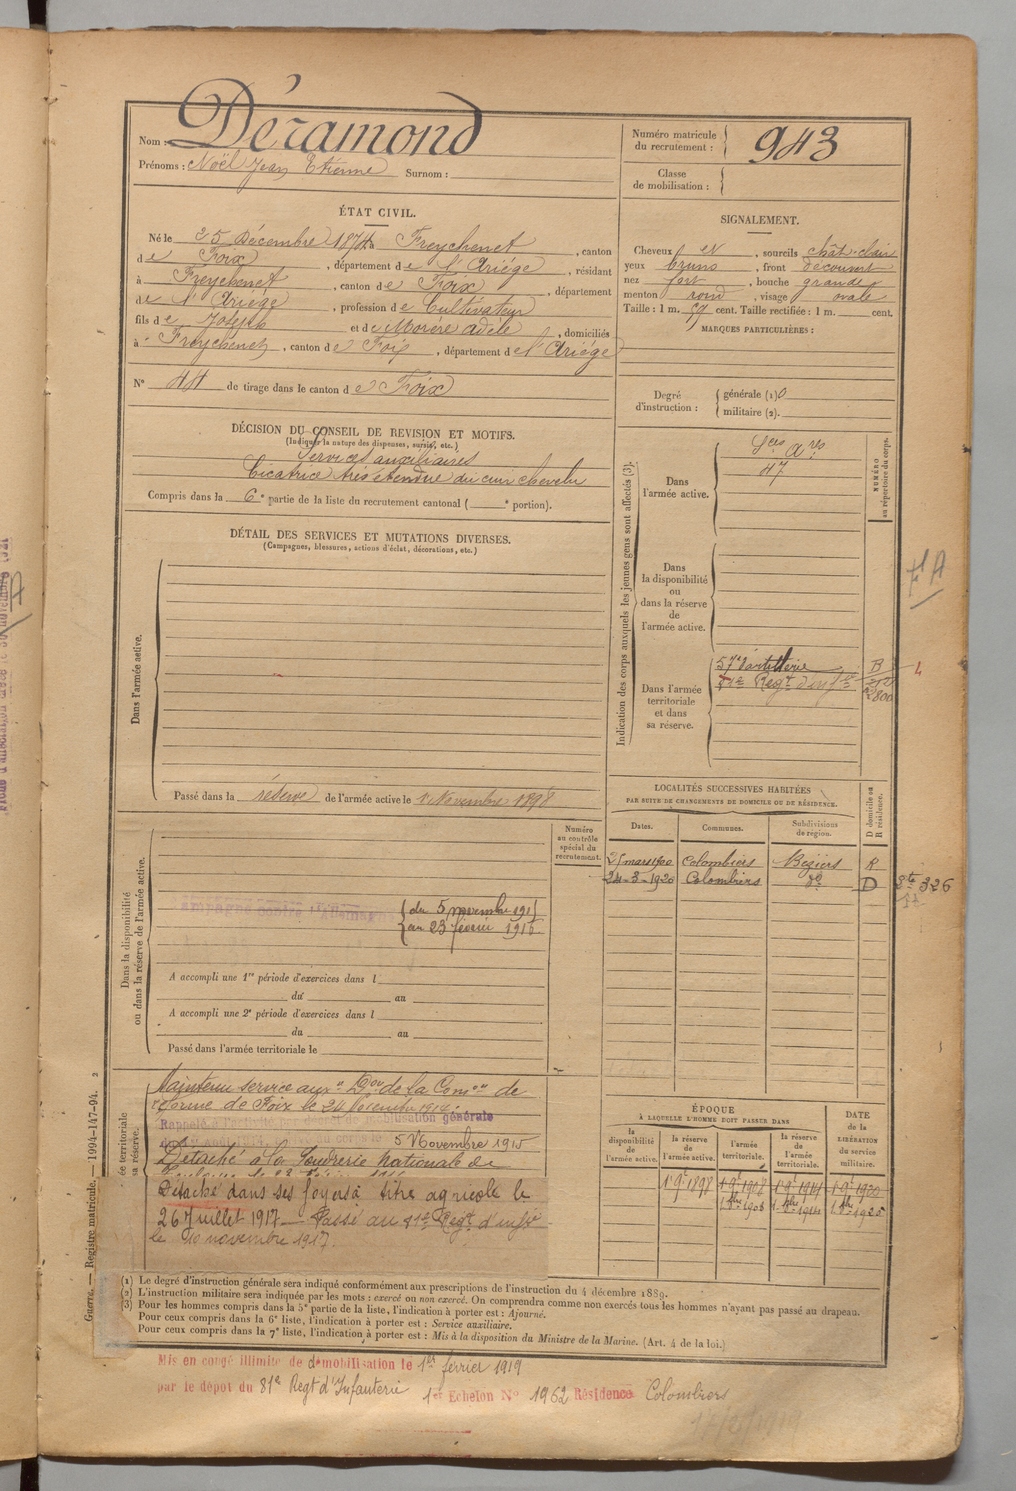 Nom : Déramond
Prénoms : Noël Jean Etienne Surnom :
Numéro matricule du recrutement : 943
Classe de mobilisation :
ÉTAT CIVIL.
Né le 25 Décembre 1874 à Freychenet, canton
de Foix, département de l'Ariége, résidant
à Freychenet, canton de Foix, département
de l'Ariége, profession de Cultivateur
fils de Joseph et de Morère adèle, domiciliés
à Freychenet, canton de Foix, département de l'Ariége
N° 44 de tirage dans le canton de Foix
SIGNALEMENT.
Cheveux et, sourcils chât-clair
yeux bruns, front découvert
nez fort, bouche grande
menton rond, visage ovale
Taille : 1 m. 59 cent. Taille rectifiée : 1 m. cent.
MARQUES PARTICULIÈRES :
Degré d'instruction : générale (1) 0
militaire (2).
DÉCISION DU CONSEIL DE REVISION ET MOTIFS.
(Indiquer la nature des dispenses, sursis, etc.)
Services auxiliaires
Cicatrice très étendue du cuir chevelu
Compris dans la 6e partie de la liste du recrutement cantonal ( e portion).
DÉTAIL DES SERVICES ET MUTATIONS DIVERSES.
(Campagnes, blessures, actions d'éclat, décorations, etc.)
Dans l'armée active.
Passé dans la réserve de l'armée active le 1 Novembre 1898
Indication des corps auxquels les jeunes gens sont affectés (3).
NUMÉRO au répertoire du corps.
Dans l'armée active.
Sces Ares
47
Dans la disponibilité ou dans la réserve de l'armée active.
Dans l'armée territoriale et dans sa réserve.
57e d'artillerie B
81e Regt d'infie
4
LOCALITÉS SUCCESSIVES HABITÉES
PAR SUITE DE CHANGEMENTS DE DOMICILE OU DE RÉSIDENCE.
Dates. Communes. Subdivisions de région. D domicile ou R résidence.
25 mars 1900 Colombiers Beziers R
24-3-1920 Colombiers do D 326
Dans la disponibilité ou dans la réserve de l'armée active.
Numéro au contrôle spécial du recrutement.
Campagne contre l'Allemagne
du 5 novembre 1915
au 23 février 1916
A accompli une 1re période d'exercices dans l
du au
A accompli une 2e période d'exercices dans l
du au
Passé dans l'armée territoriale le
Maintenu service auxre Don de la Comon de
réforme de Foix le 24 Novembre 1914.
Rappelé à l'activité décret de mobilisation générale
du 1er Août 1914. Arrivé au corps le 5 Novembre 1915
Détaché à la Poudrerie Nationale de
Détaché dans ses foyers à titre agricole le
26 Juillet 1917 — Passé au 81e Regt d'infie
le 10 novembre 1917.
ÉPOQUE
À LAQUELLE L'HOMME DOIT PASSER DANS
la disponibilité de l'armée active. la réserve de l'armée active. l'armée territoriale. la réserve de l'armée territoriale.
DATE de la LIBÉRATION du service militaire.
1er 9bre 1898 1er 9bre 1908 1er 9bre 1914 1er 9bre 1920
Guerre. — Registre matricule. — 1994-147-94.
(1) Le degré d'instruction générale sera indiqué conformément aux prescriptions de l'instruction du 4 décembre 1889.
(2) L'instruction militaire sera indiquée par les mots : exercé ou non exercé. On comprendra comme non exercés tous les hommes n'ayant pas passé au drapeau.
(3) Pour les hommes compris dans la 5e partie de la liste, l'indication à porter est : Ajourné.
Pour ceux compris dans la 6e liste, l'indication à porter est : Service auxiliaire.
Pour ceux compris dans la 7e liste, l'indication à porter est : Mis à la disposition du Ministre de la Marine. (Art. 4 de la loi.)
Mis en congé illimité de démobilisation le 1er février 1919
par le dépôt du 81e Regt d'Infanterie 1er Echelon N° 1962 Résidence Colombiers